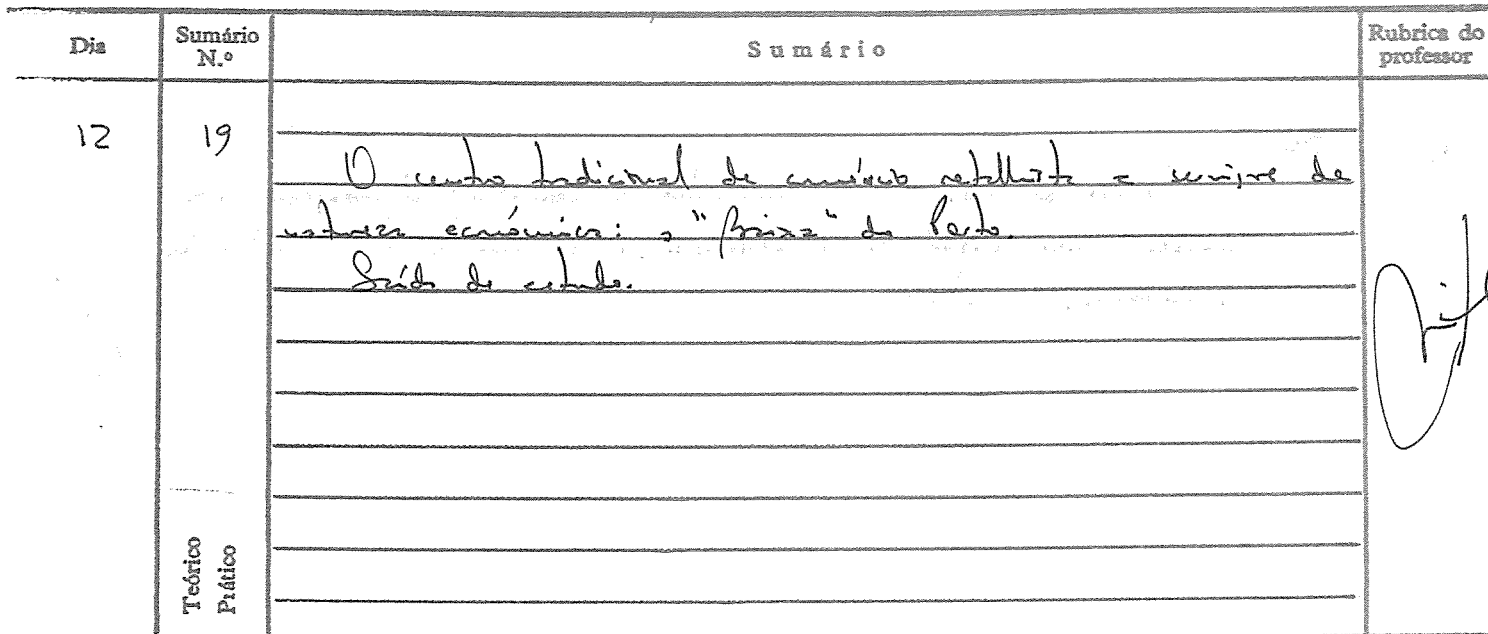 Dia Sumário N.º Sumário Rubrica do professor
12 19
O centro tradicional de comércio retalhista e serviços de
natureza económica: a "Baixa" do Porto.
Saída de estudo.
Teórico
Prático